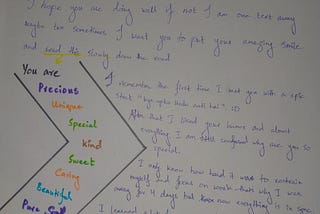 I hope you are doing well if not I am one text away
maybe two sometimes. I want you to put your amazing smile
and read this slowly down the road
You are
Precious
Unique
Special
Kind
Sweet
Caring
Beautiful
Pure Soul
I remember the first time I met you with a epic
start
:D
After that I liked your humor and almost
everything I am still confused why are you so
special.
I only know how hard it was to restrain
myself and focus on work that's why I was
away for 4 days but now everything is in some
I learned a lot